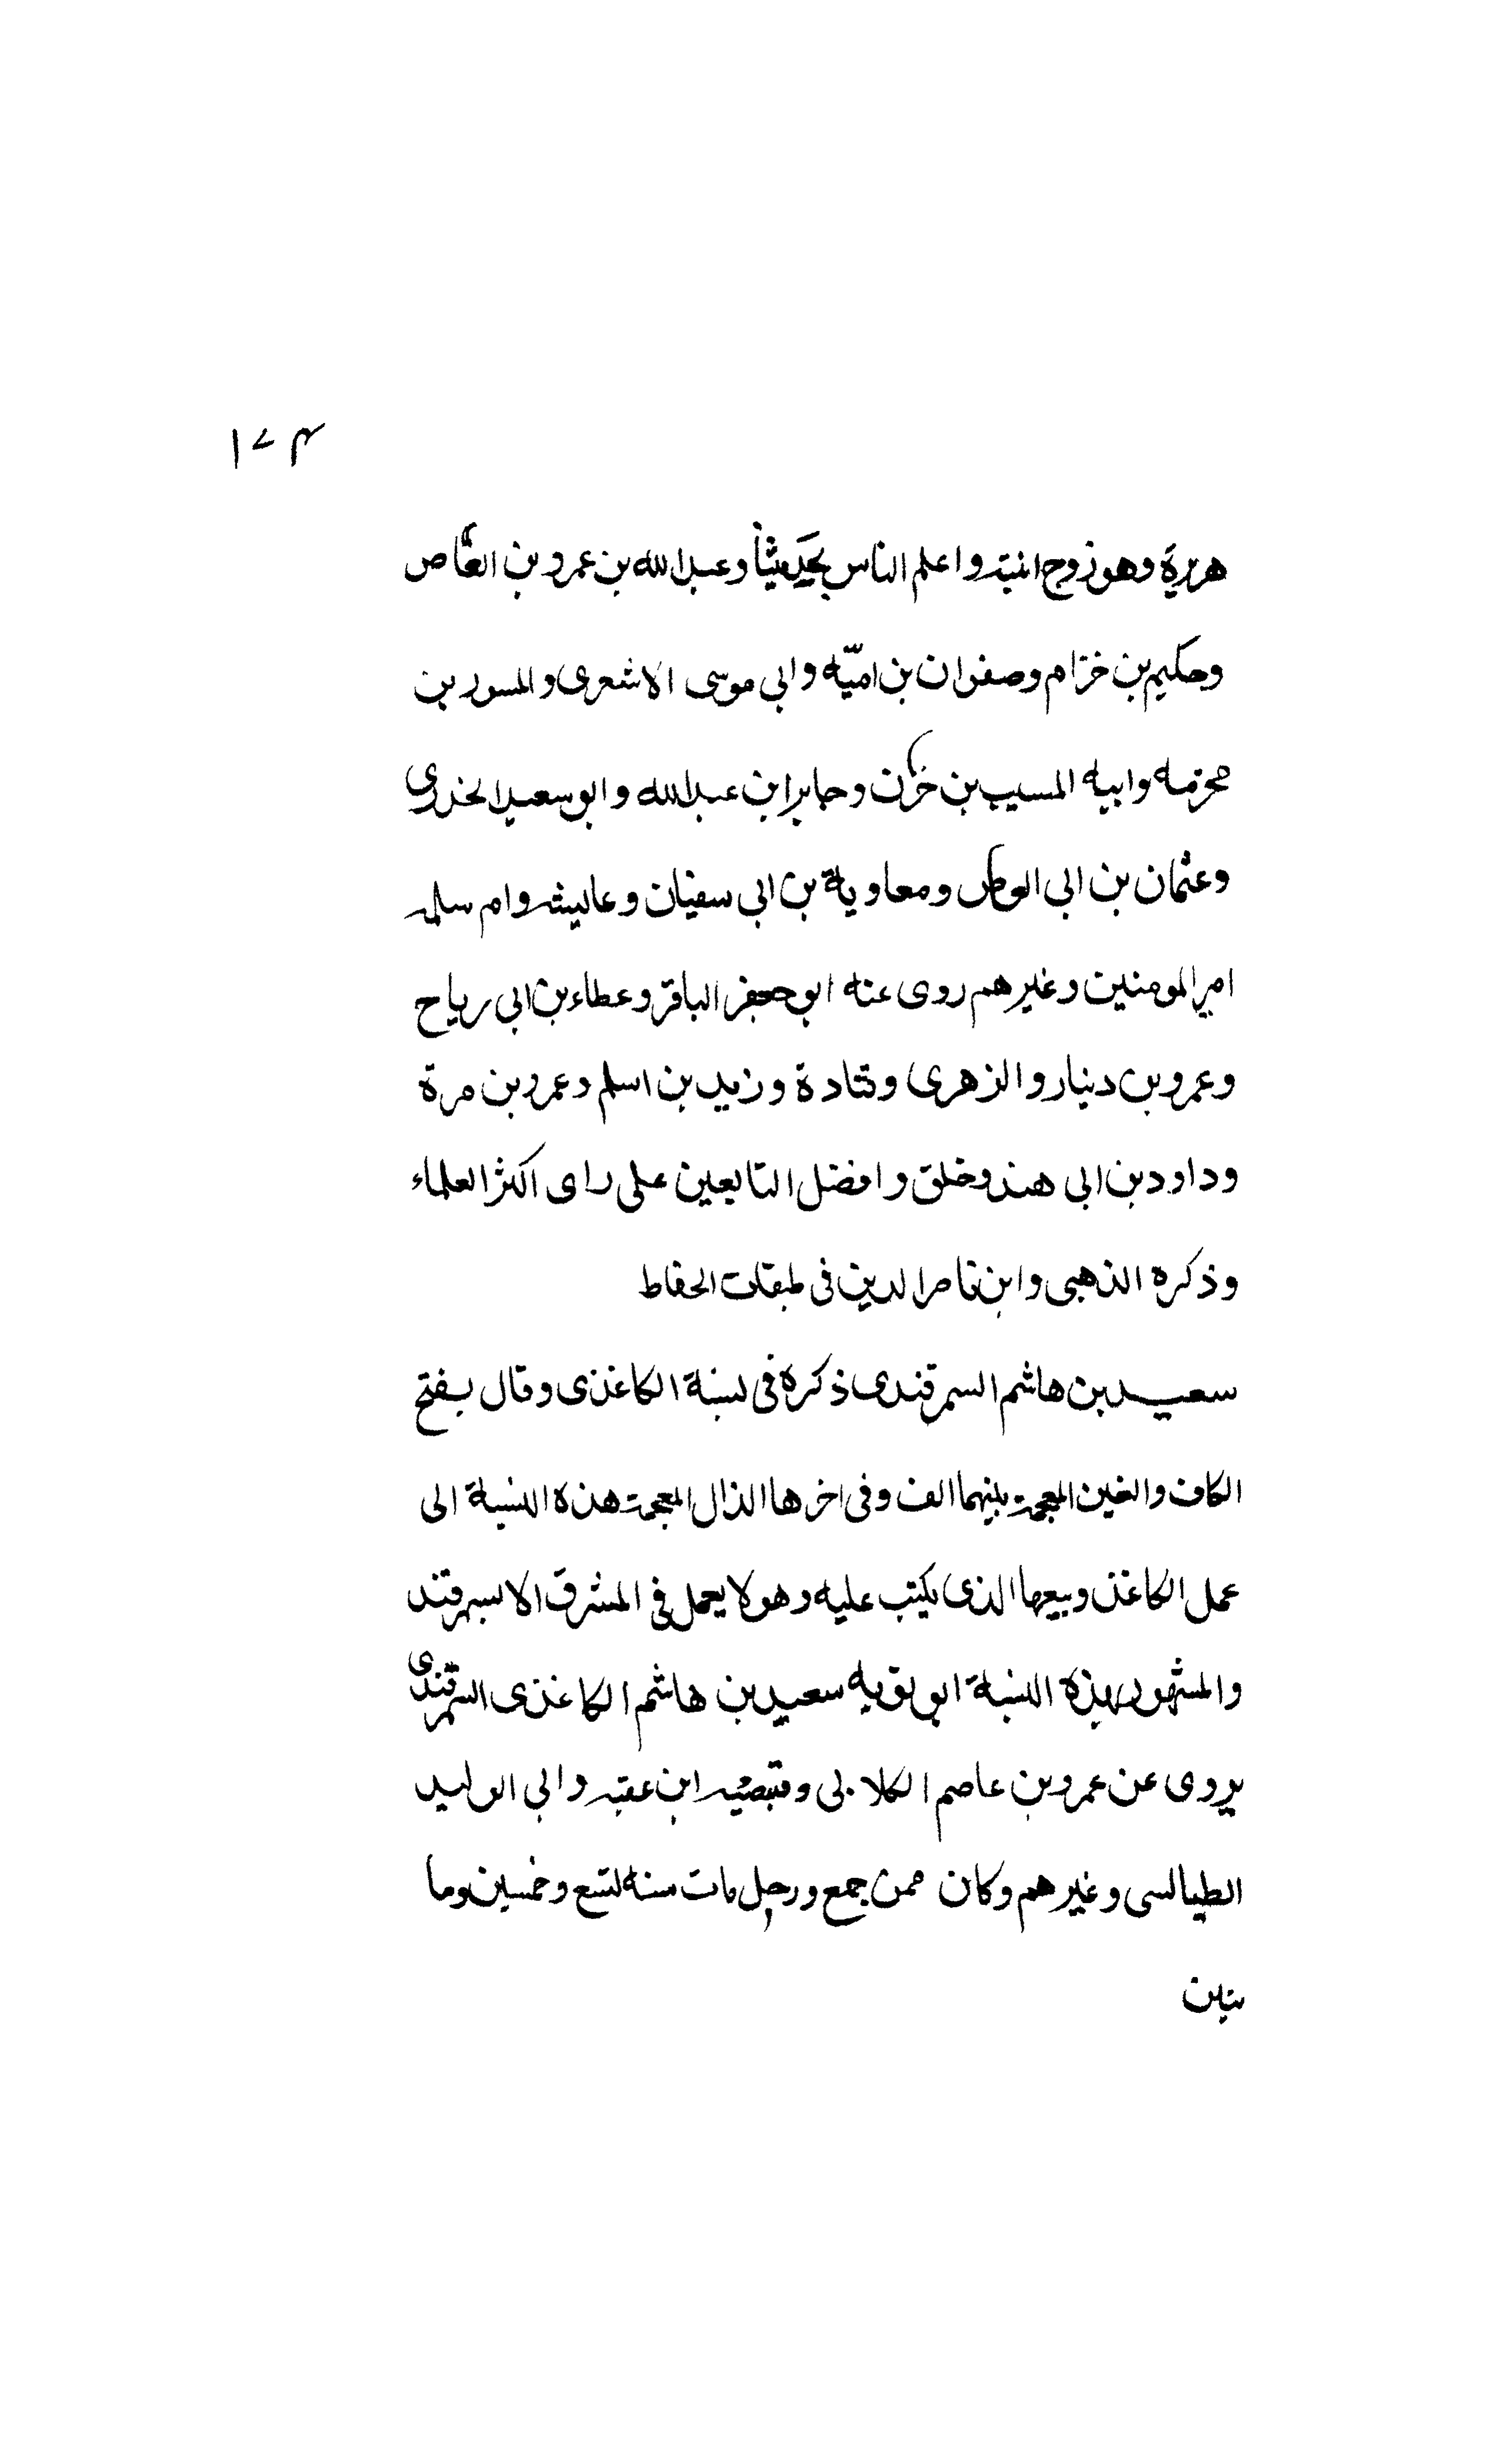 ١٧٣
هريرة وهو زوج ابنته واعلم الناس بحديثا وعبدالله بن عمرو بن العاص
وحكيم بن خزام وصفوان بن اميّه وابى موسى الاشعرى والمسور بن
مخرمه وابيه المسيب بن حزن وجابر ابن عبدالله وابو سعيد الخدرى
وعثمان بن ابى العاص ومعاوية بن ابى سفيان وعايشه وام سلمه
امير المومنين وغيرهم روى عنه ابو جعفر الباقر وعطاء بن ابى رباح
وعمرو بن دينار والزهرى وقتادة وزيد بن اسلم وعمرو بن مرة
وداود بن ابى هند وخلق وافضل التابعين على راى اكثر العلماء
وذكره الذهبى وابن ناصر الدين فى طبقات الحفاط
سعيد بن هاشم السمرقندى ذكره فى نسبة الكاغذى وقال بفتح
الكاف والغين المعجمة بينهما الف وفى اخرها الذال المعجمة هذه النسبة الى
عمل الكاغذ وبيعها الذى يكتب عليه وهو لا يعمل فى المشرق الا بسمرقند
والمشهور بهذه النسبة ابو توبه سعيد بن هاشم الكاغذى السمرقندى
يروى عن عمرو بن عاصم الكلابى وقبصيه ابن عقبه وابى الوليد
الطيالسى وغيرهم وكان ممن جمع ورحل مات سنه تسع وخمسين وما
ىتين